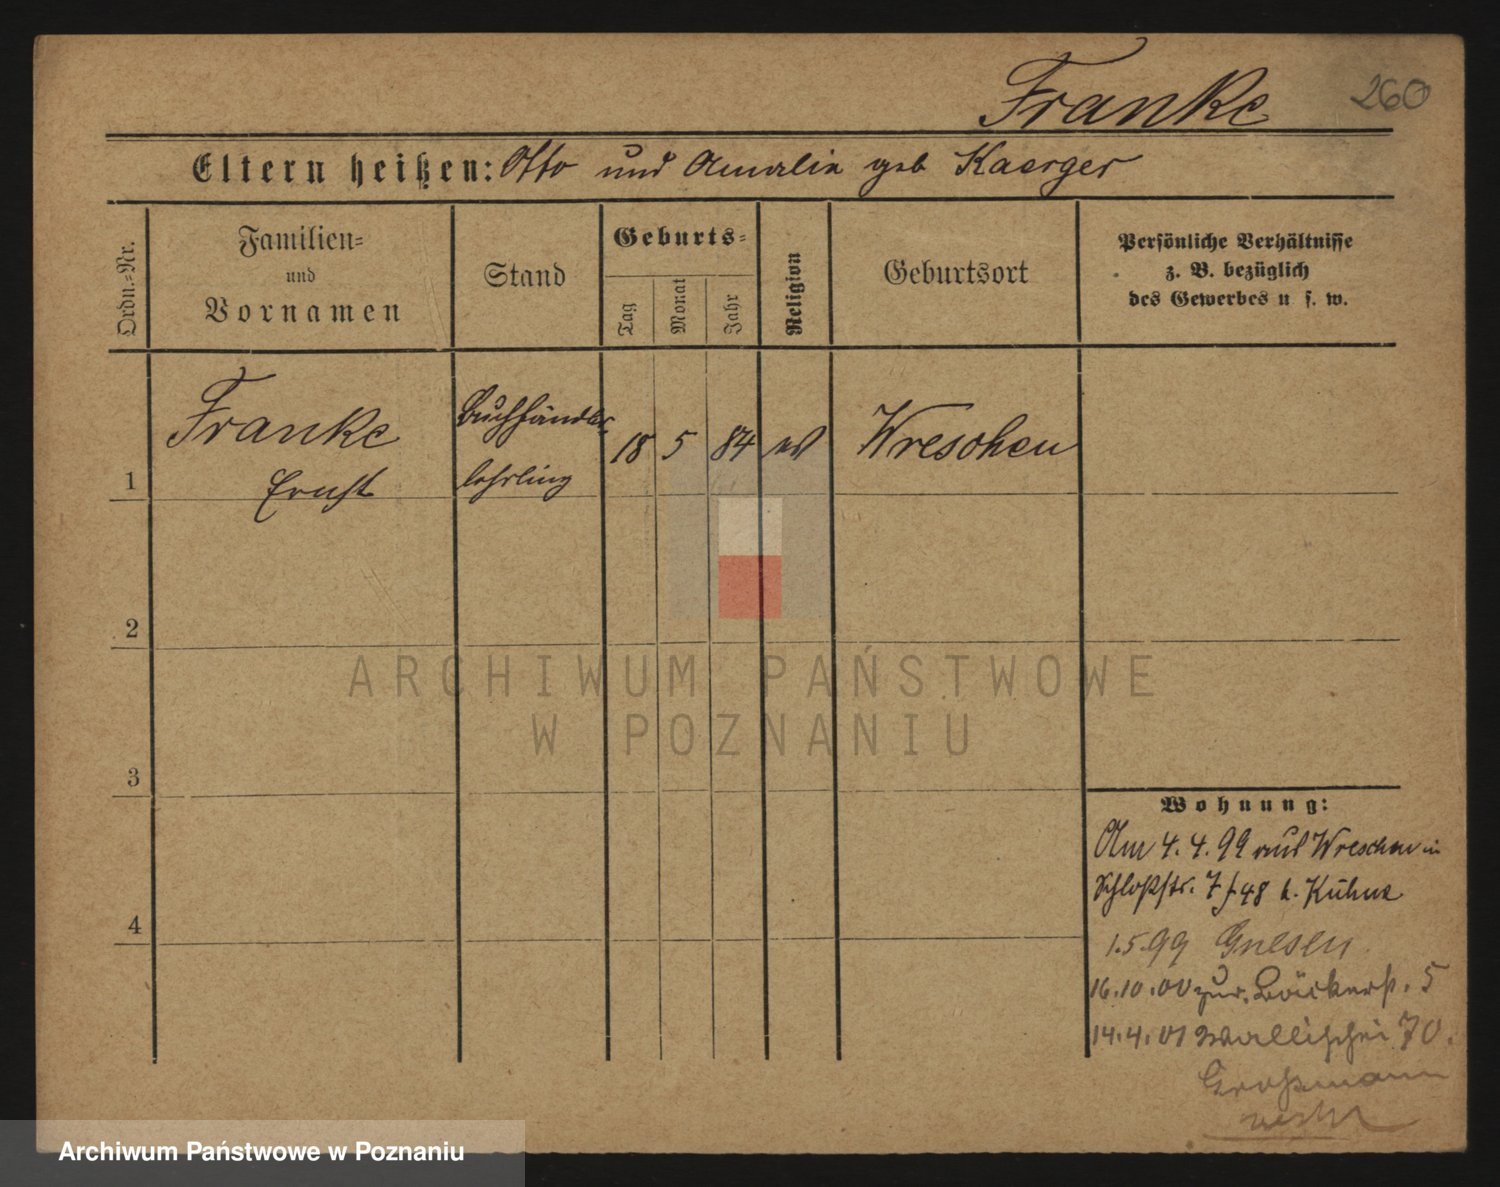 Franke 260
Eltern heißen: Otto und Amalie geb Kaerger
Ordn.-Nr.
Familien-
und
Vornamen
Stand
Geburts-
Tag
Monat
Jahr
Religion
Geburtsort
Persönliche Verhältnisse
z. B. bezüglich
des Gewerbes u s. w.
1
Franke
Ernst
Buchhändler
lehrling
18 5 84 ev Wreschen
2
ARCHIWUM PAŃSTWOWE
W POZNANIU
3
Wohnung:
Am 4. 4. 99 aus Wreschen in
Schloßstr. 7 f 48 b. Kühne
4
1.5.99 Gnesen
16.10.00 zur. Bäckerst. 5
14.4.01 Wallischei 70.
Großmann
Archiwum Państwowe w Poznaniu